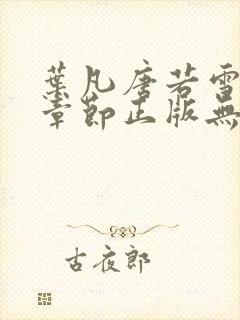 葉凡唐若雪
章節正版無
古夜郎